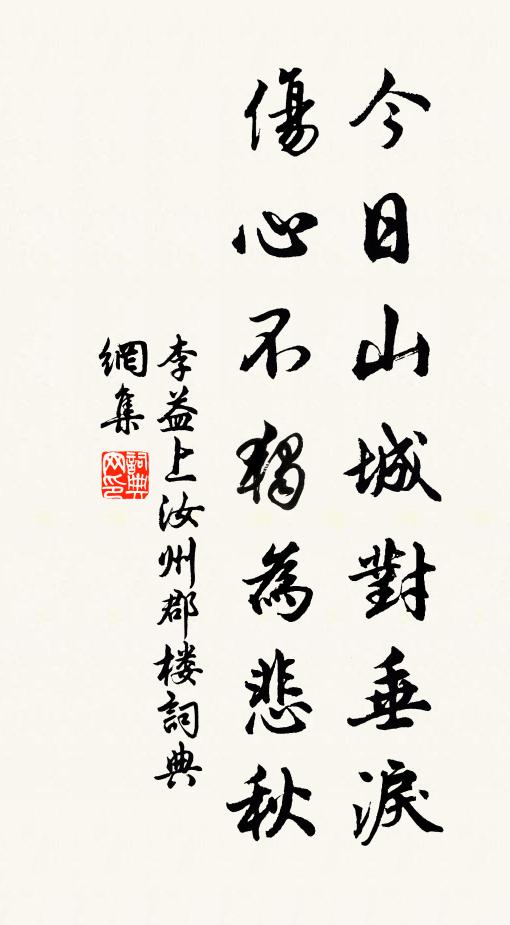 今日山城對垂淚
傷心不獨為悲秋
李益上汝州郡楼詞典
網集
詞典
网印